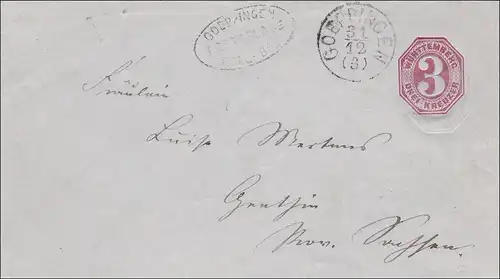 GOEPPINGEN
GOEPPINGEN
31
12
(3)
WÜRTTEMBERG
3
DREI KREUZER
Fräulein
Luise Mertens
Genthin
Prov. Sachsen.